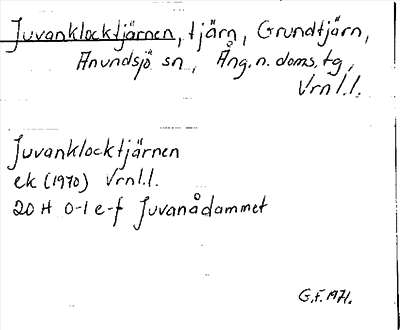 Juvanklocktjärnen, tjärn, Grundtjärn,
Anundsjö sn, Ång. n. doms. tg,
Vrnl.l.
Juvanklocktjärnen
ek (1970) Vrnl.l.
20 H 0-1 e-f Juvanådammet
G.F. 1971.